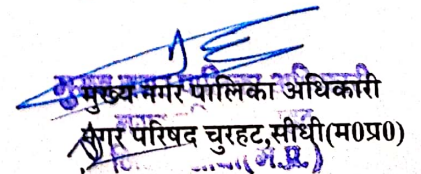 मुख्य नगर पालिका अधिकारी
नगर परिषद चुरहट,सीधी(म0प्र0)